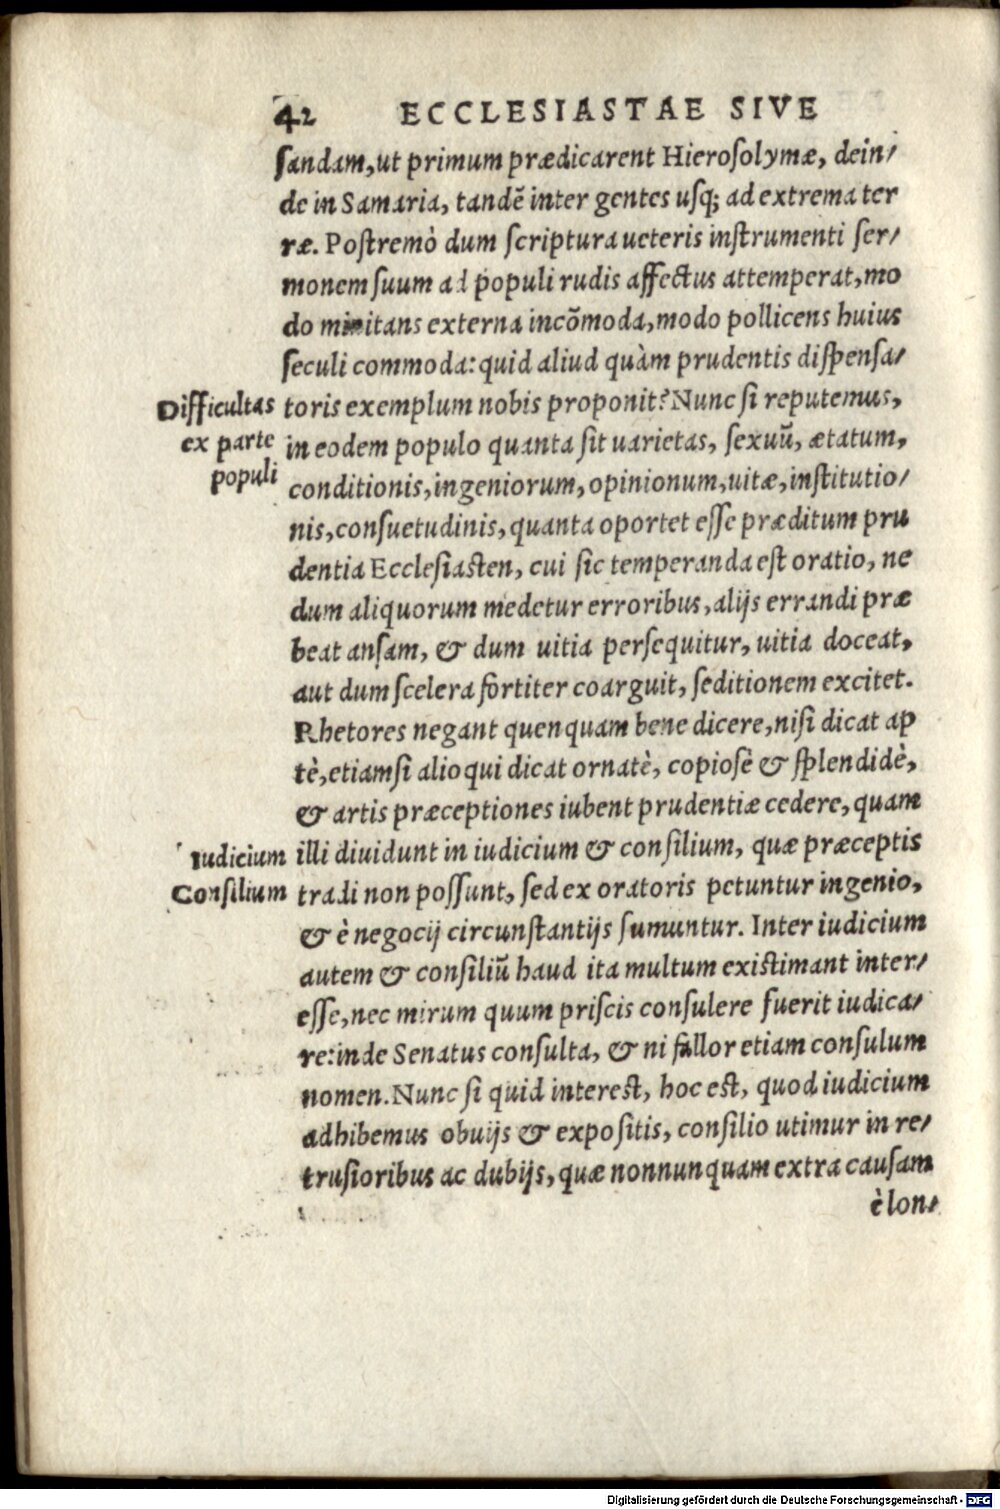 42 ECCLESIASTAE SIVE
sandam, ut primum prædicarent Hierosolymæ, dein/
de in Samaria, tandẽ inter gentes usq; ad extrema ter
ræ. Postremò dum scriptura ueteris instrumenti ser/
monem suum ad populi rudis affectus attemperat, mo
do minitans externa incõmoda, modo pollicens huius
seculi commoda: quid aliud quàm prudentis dispensa/
Difficultas toris exemplum nobis proponit? Nunc si reputemus,
ex parte in eodem populo quanta sit uarietas, sexuũ, ætatum,
populi conditionis, ingeniorum, opinionum, uitæ, institutio/
nis, consuetudinis, quanta oportet esse præditum pru
dentia Ecclesiasten, cui sic temperanda est oratio, ne
dum aliquorum medetur erroribus, alijs errandi præ
beat ansam, & dum uitia persequitur, uitia doceat,
aut dum scelera fortiter coarguit, seditionem excitet.
Rhetores negant quenquam bene dicere, nisi dicat ap
tè, etiamsi alioqui dicat ornatè, copiosè & splendidè,
& artis præceptiones iubent prudentiæ cedere, quam
Iudicium illi diuidunt in iudicium & consilium, quæ præceptis
Consilium tradi non possunt, sed ex oratoris petuntur ingenio,
& è negocij circunstantijs sumuntur. Inter iudicium
autem & consiliũ haud ita multum existimant inter/
esse, nec mirum quum priscis consulere fuerit iudica/
re: inde Senatus consulta, & ni fallor etiam consulum
nomen. Nunc si quid interest, hoc est, quod iudicium
adhibemus obuijs & expositis, consilio utimur in re/
trusioribus ac dubijs, quæ nonnunquam extra causam
è lon/
Digitalisierung gefördert durch die Deutsche Forschungsgemeinschaft - DFG